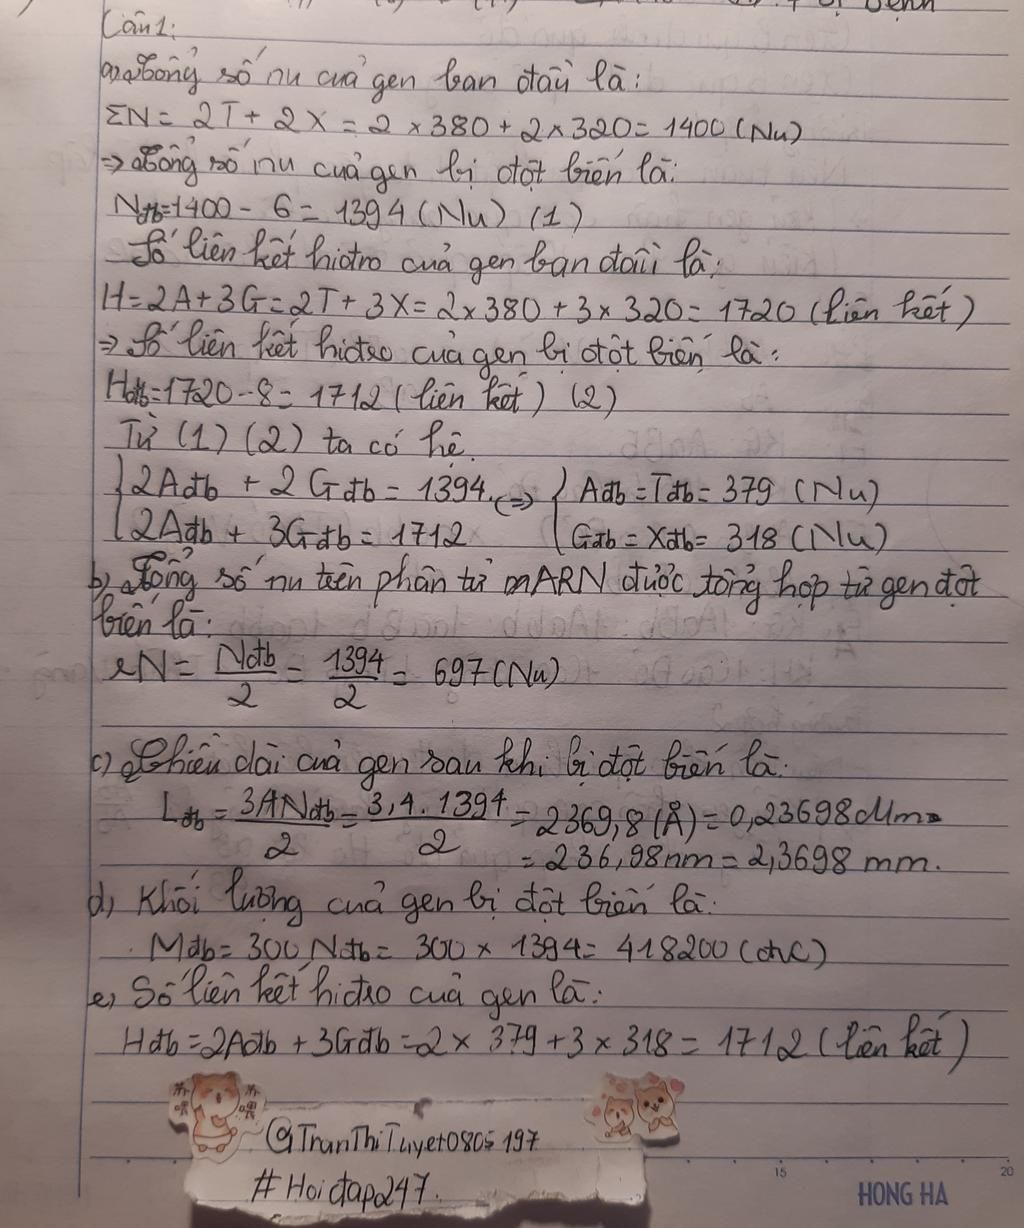 Câu 1:
a) Tổng số nu của gen ban đầu là:
ΣN = 2T + 2X = 2 × 380 + 2 × 320 = 1400 (Nu)
=> Tổng số nu của gen bị đột biến là:
Nđb = 1400 - 6 = 1394 (Nu) (1)
Số liên kết hiđro của gen ban đầu là:
H = 2A + 3G = 2T + 3X = 2 × 380 + 3 × 320 = 1720 (liên kết)
=> Số liên kết hiđro của gen bị đột biến là:
Hđb = 1720 - 8 = 1712 (liên kết) (2)
Từ (1) (2) ta có hệ.
{ 2Ađb + 2Gđb = 1394 <=> { Ađb = Tđb = 379 (Nu)
{ 2Ađb + 3Gđb = 1712 { Gđb = Xđb = 318 (Nu)
b) Tổng số nu trên phân tử mARN được tổng hợp từ gen đột
biến là:
rN = Nđb/2 = 1394/2 = 697 (Nu)
c) Chiều dài của gen sau khi bị đột biến là:
Lđb = 3,4Nđb/2 = 3,4.1394/2 = 2369,8 (Å) = 0,23698 Mm
= 236,98 nm = 2,3698 mm.
d) Khối lượng của gen bị đột biến là:
Mđb = 300 Nđb = 300 × 1394 = 418200 (đvC)
e) Số liên kết hiđro của gen là:
Hđb = 2Ađb + 3Gđb = 2 × 379 + 3 × 318 = 1712 (liên kết)
@TranThiTuyet0805197
#Hoidap247.
15
20
HONG HA